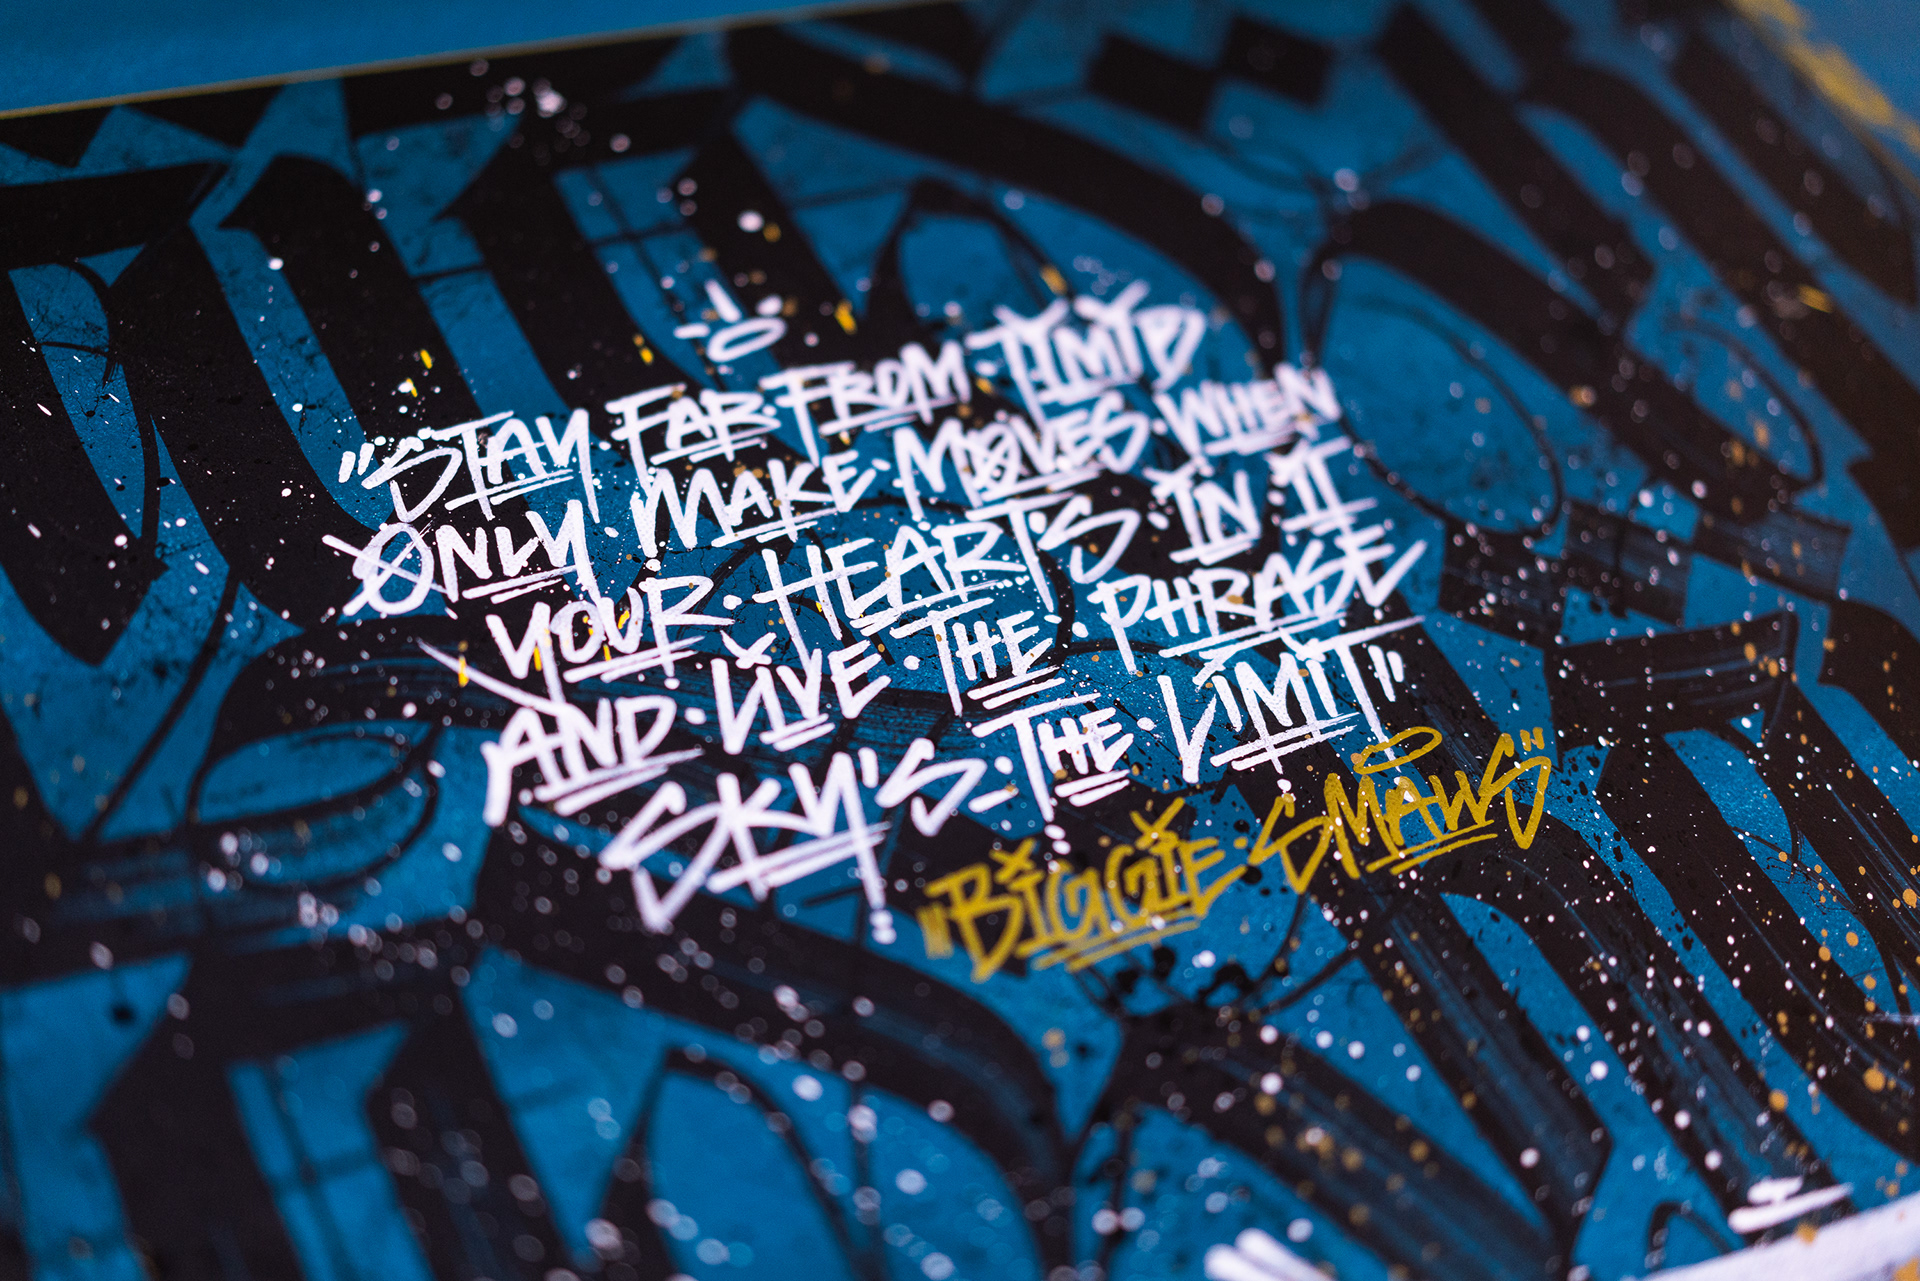 "STAY FAR FROM TIMID
ONLY MAKE MOVES WHEN
YOUR HEART'S IN IT
AND LIVE THE PHRASE
SKY'S THE LIMIT"
"BIGGIE SMAWS"